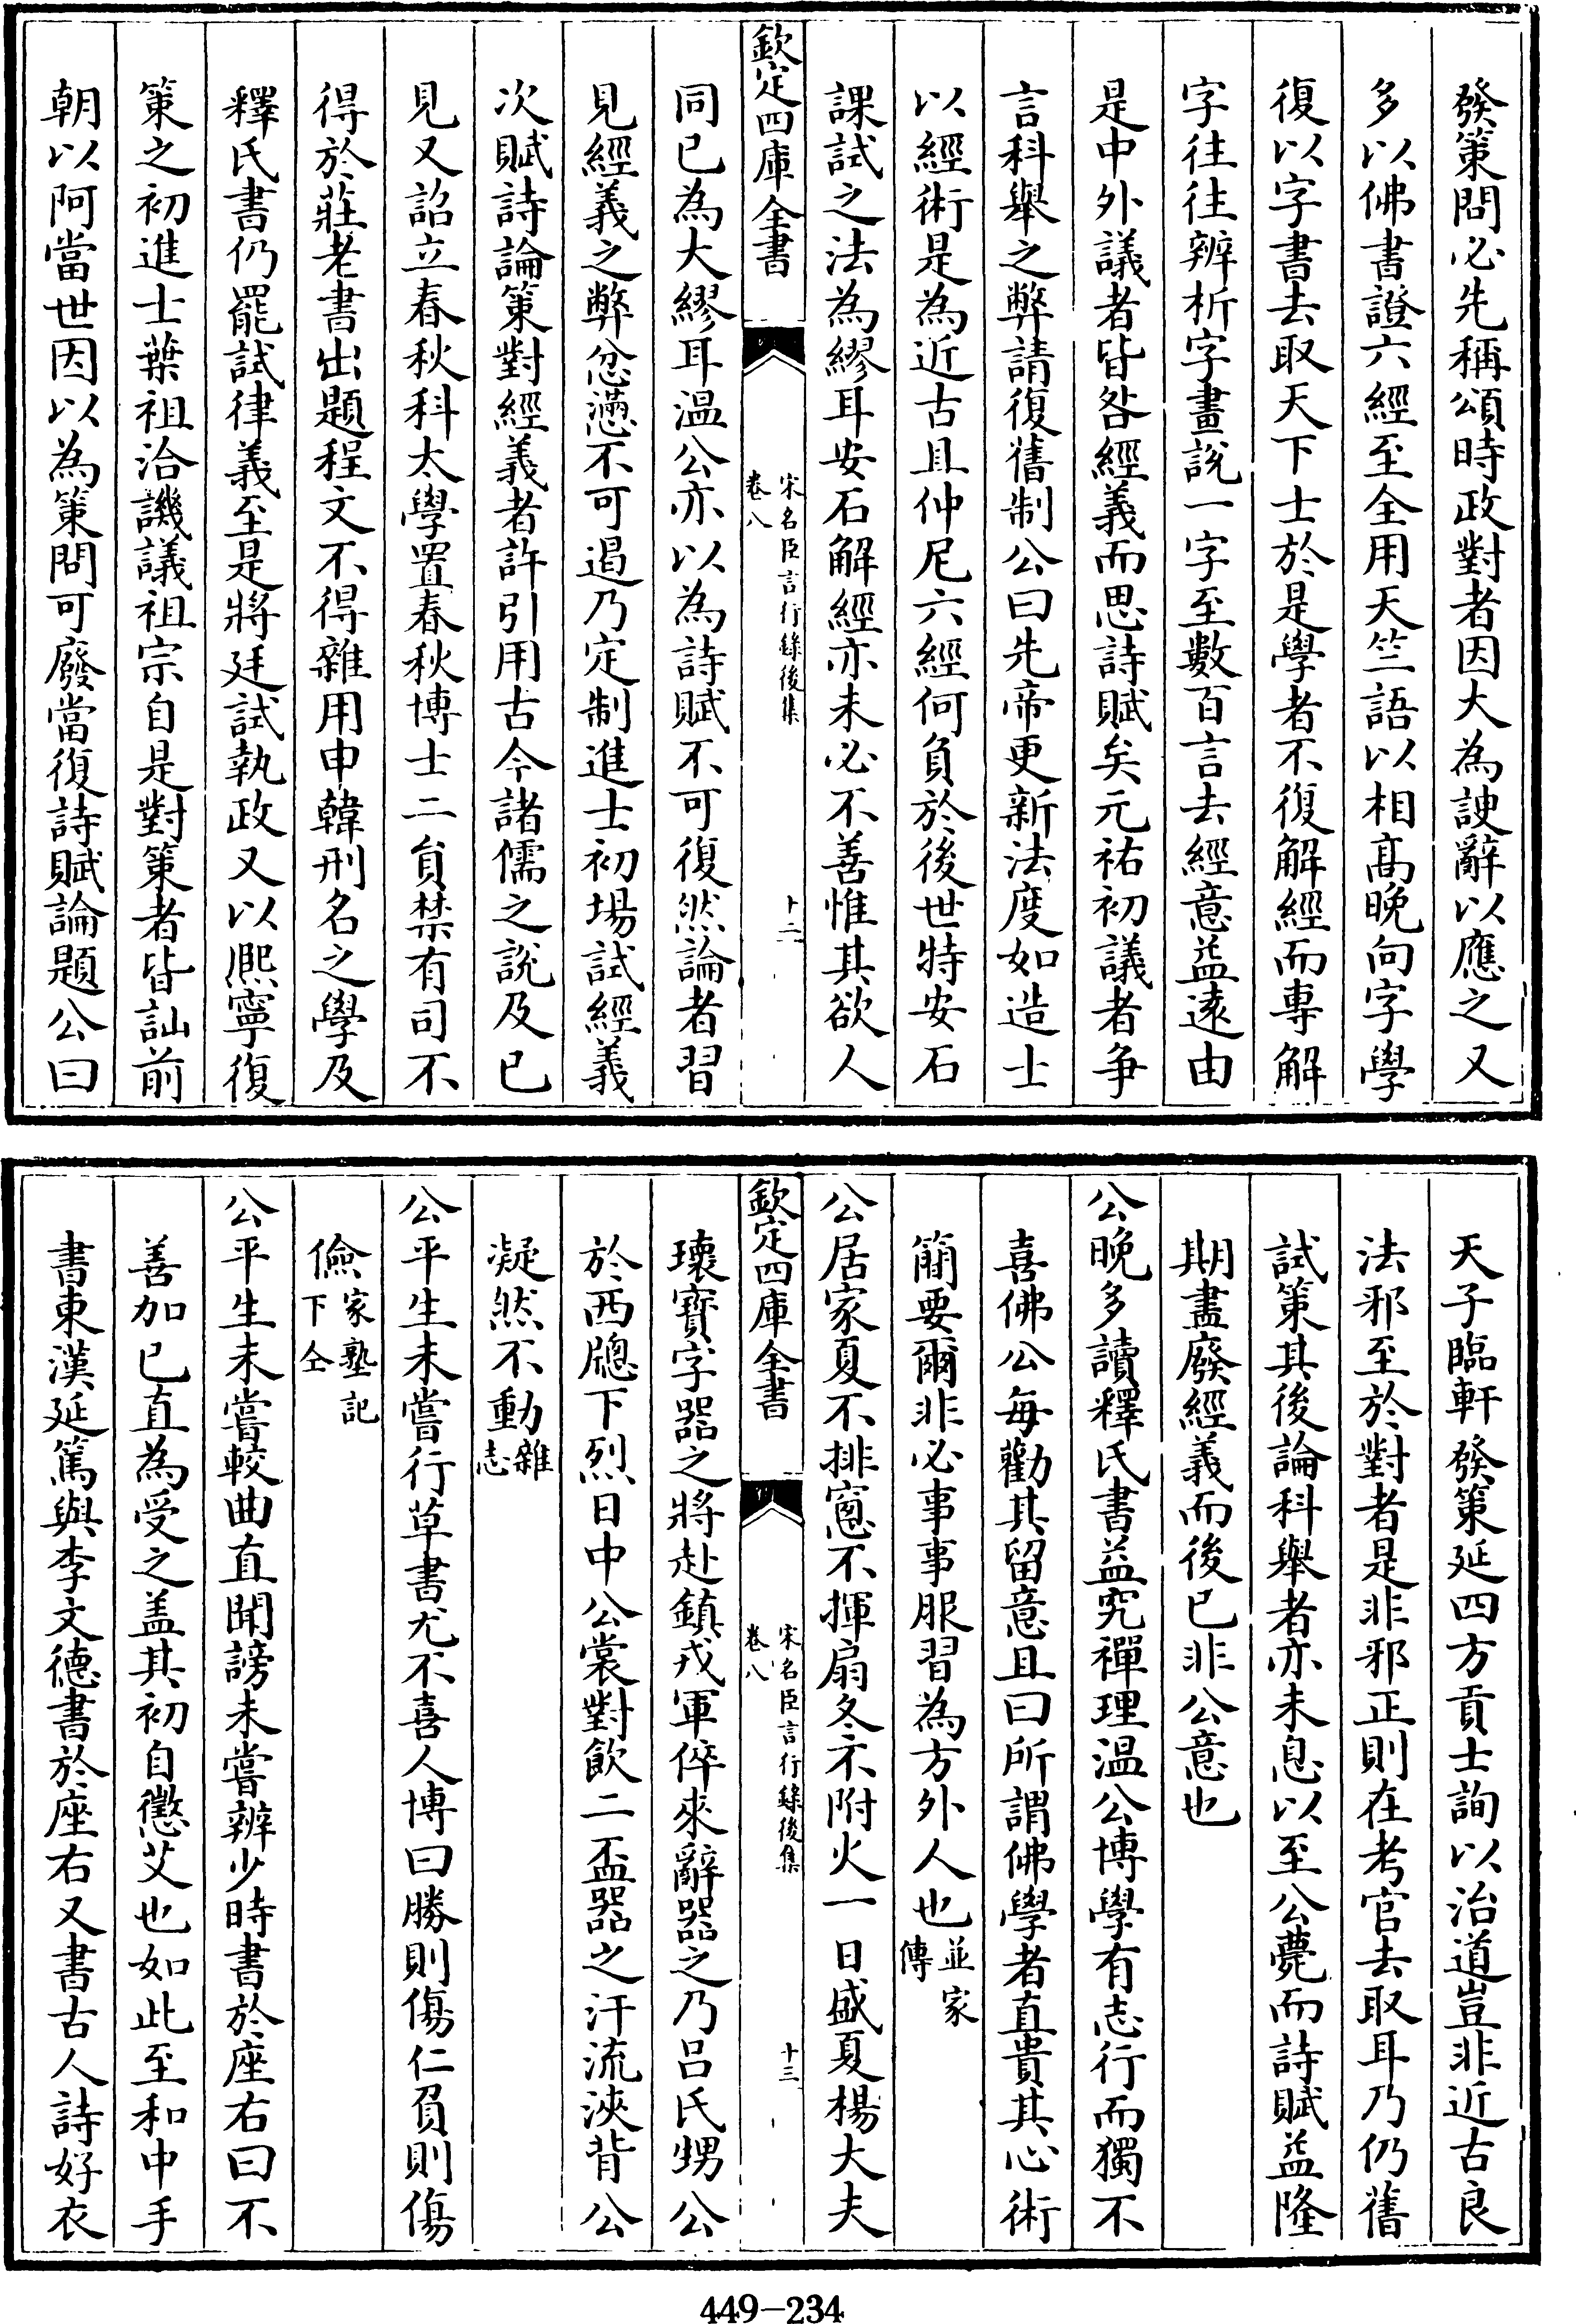 發策問必先稱頌時政對者因大為諛辭以應之又
多以佛書證六經至全用天竺語以相髙晚向字學
復以字書去取天下士於是學者不復解經而專解
字往往辨析字畫說一字至數百言去經意益逺由
是中外議者皆咎經義而思詩賦矣元祐初議者争
言科舉之弊請復舊制公曰先帝更新法度如造士
以經術是為近古且仲尼六經何負於後世特安石
課試之法為繆耳安石解經亦未必不善惟其欲人
欽定四庫全書
宋名臣言行録後集
卷八
十二
同已為大繆耳温公亦以為詩賦不可復然論者習
見經義之弊忿懣不可遏乃定制進士初場試經義
次賦詩論策對經義者許引用古今諸儒之說及已
見又詔立春秋科太學置春秋博士二負禁有司不
得於莊老書出題程文不得雜用申韓刑名之學及
釋氏書仍罷試律義至是將廷試執政又以熈寧復
策之初進士葉祖洽譏議祖宗自是對策者皆訕前
朝以阿當世因以為策問可廢當復詩賦論題公曰
天子臨軒發策延四方貢士詢以治道豈非近古良
法邪至於對者是非邪正則在考官去取耳乃仍舊
試策其後論科舉者亦未息以至公薨而詩賦益隆
期盡廢經義而後已非公意也
公晚多讀釋氏書益究禪理温公博學有志行而獨不
喜佛公每勸其留意且曰所謂佛學者直貴其心術
簡要爾非必事事服習為方外人也並家傳
公居家夏不排窻不揮扇冬不附火一日盛夏楊大夫
欽定四庫全書
宋名臣言行録後集
卷八
十三
瓌寳字器之將赴鎮戎軍倅來辭器之乃吕氏甥公
於西牕下烈日中公裳對飲二盃器之汗流浹背公
凝然不動雜志
公平生未嘗行草書尤不喜人博曰勝則傷仁負則傷
儉家塾記下仝
公平生未嘗較曲直聞謗未嘗辨少時書於座右曰不
善加已直為受之蓋其初自懲艾也如此至和中手
書東漢延篤與李文德書於座右又書古人詩好衣
449-234